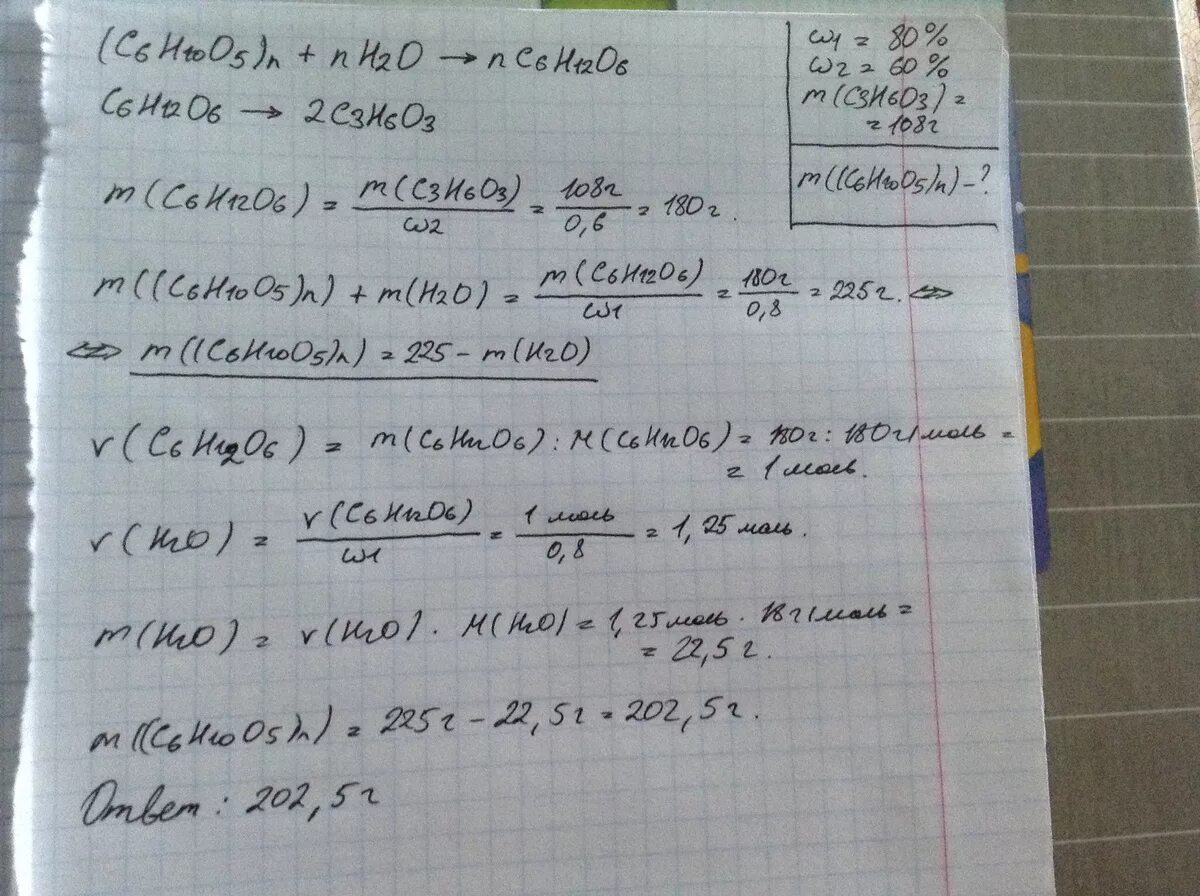 (C6H10O5)n + nH2O → nC6H12O6
C6H12O6 → 2C3H6O3
ω1 = 80%
ω2 = 60%
m(C3H6O3) =
= 108г
m((C6H10O5)n) - ?
m(C6H12O6) = m(C3H6O3) / ω2 = 108г / 0,6 = 180г.
m((C6H10O5)n) + m(H2O) = m(C6H12O6) / ω1 = 180г / 0,8 = 225г. ⇔
⇔ m((C6H10O5)n) = 225 - m(H2O)
ν(C6H12O6) = m(C6H12O6) : M(C6H12O6) = 180г : 180г/моль =
= 1 моль.
ν(H2O) = ν(C6H12O6) / ω1 = 1 моль / 0,8 = 1,25 моль.
m(H2O) = ν(H2O) · M(H2O) = 1,25 моль · 18г/моль =
= 22,5г.
m((C6H10O5)n) = 225г - 22,5г = 202,5г.
Ответ: 202,5г